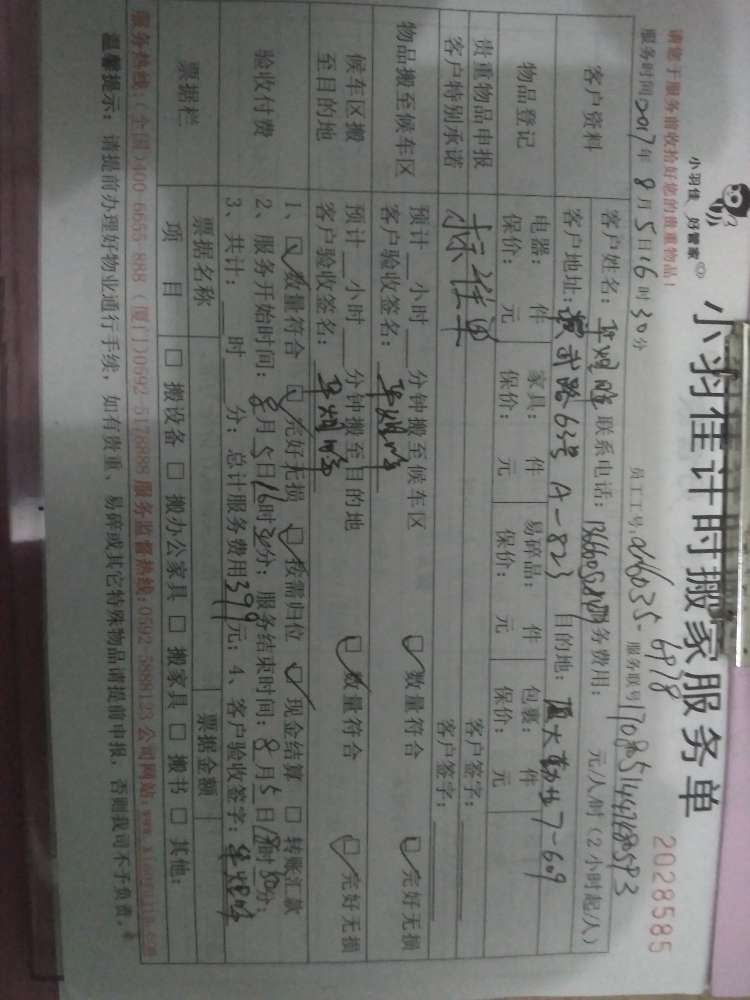 小羽佳计时搬家服务单
小羽佳 好管家
2028585
请您于服务前收拾好您的贵重物品!
服务时间2017年8月5日16时30分 员工工号: 服务联号
客户资料
客户姓名: 联系电话: 服务费用: 元/人/时(2小时起/人)
客户地址: 路63号A-823 目的地: 7-609
物品登记
电器: 件 家具: 件 易碎品: 件 包裹: 件
保价: 元 保价: 元 保价: 元 保价: 元
贵重物品申报 客户签字:
客户特别承诺 标准单 客户签字:
物品搬至候车区
预计__小时__分钟搬至候车区 ☑数量符合 ☑完好无损
客户验收签名:
候车区搬至目的地
预计__小时__分钟搬至目的地 ☑数量符合 ☑完好无损
客户验收签名:
验收付费
1、☑数量符合 ☑完好无损 ☑按需归位 ☑现金结算 □转账汇款
2、服务开始时间:8月5日16时30分;服务结束时间:8月5日18时50分;
3、共计:__时__分;总计服务费用399元;4、客户验收签字:
票据栏
票据名称 票据金额
项目 □搬设备 □搬办公家具 □搬家具 □搬书 □其他:
服务热线:(全国)400-6655-888 (厦门)0592-5178888 服务监督热线:0592-5888123 公司网站:
温馨提示:请提前办理好物业通行手续,如有贵重、易碎或其它特殊物品请提前申报,否则我司不予负责。